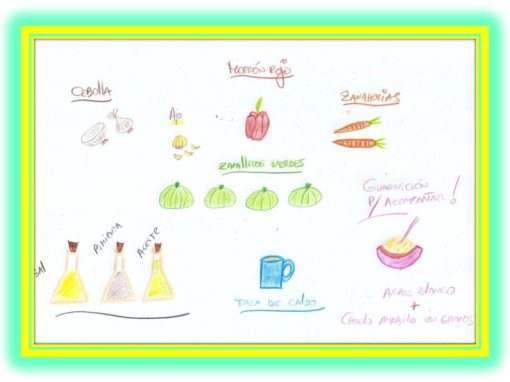 MORRÓN Rojo
CEBOLLA
Ajo
ZANAHORIAS
ZAPALLITOS VERDES
GUARNICIÓN
P/ ACOMPAÑAR!
SAl
PIMIENTA
ACEITE
TAZA DE CALDO
ARROZ BLANCO
+
Choclo AMARILLO EN GRANOS